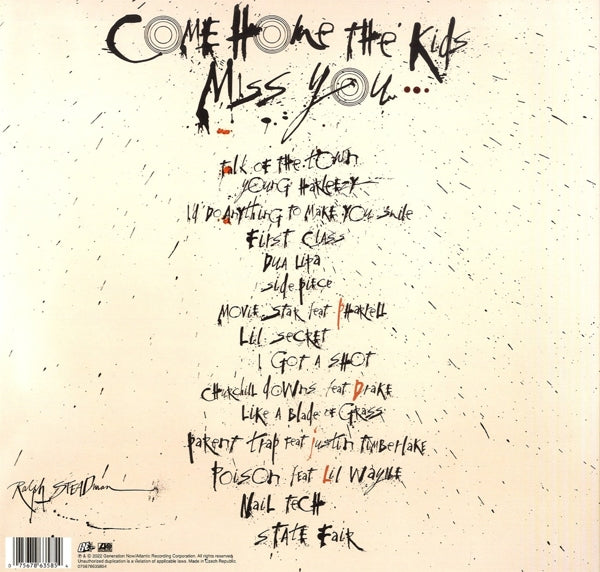 COME HOME THE KIDS
MISS YOU...
TALK OF THE TOWN
YOUNG HARLEEZY
I'd DO ANYTHING TO MAKE YOU SMILE
FIRST CLASS
DUA LIPA
SIDE PIECE
MOVIE STAR feat PHARRELL
LIL SECRET
I GOT A SHOT
CHURCHILL DOWNS feat DRAKE
LIKE A BLADE OF GRASS
PARENT TRAP feat JUSTIN TIMBERLAKE
POISON feat LIL WAYNE
NAIL TECH
STATE FAIR
Ralph STEADman
℗ & © 2022 Generation Now/Atlantic Recording Corporation. All rights reserved.
Unauthorized duplication is a violation of applicable laws. Made in Czech Republic.
075678635854
0 75678 63585 4